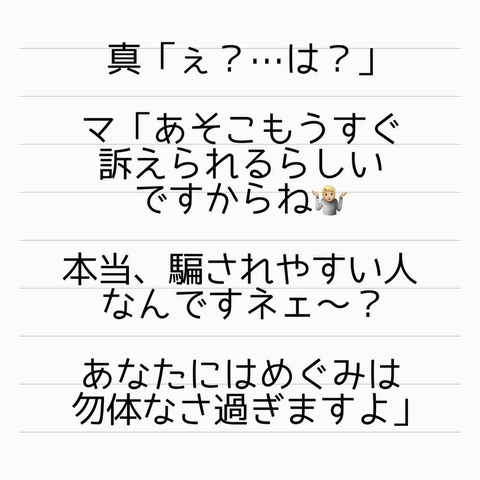 真「ぇ？…は？」
マ「あそこもうすぐ
訴えられるらしい
ですからね🤷🏼
本当、騙されやすい人
なんですネェ〜？
あなたにはめぐみは
勿体なさ過ぎますよ」